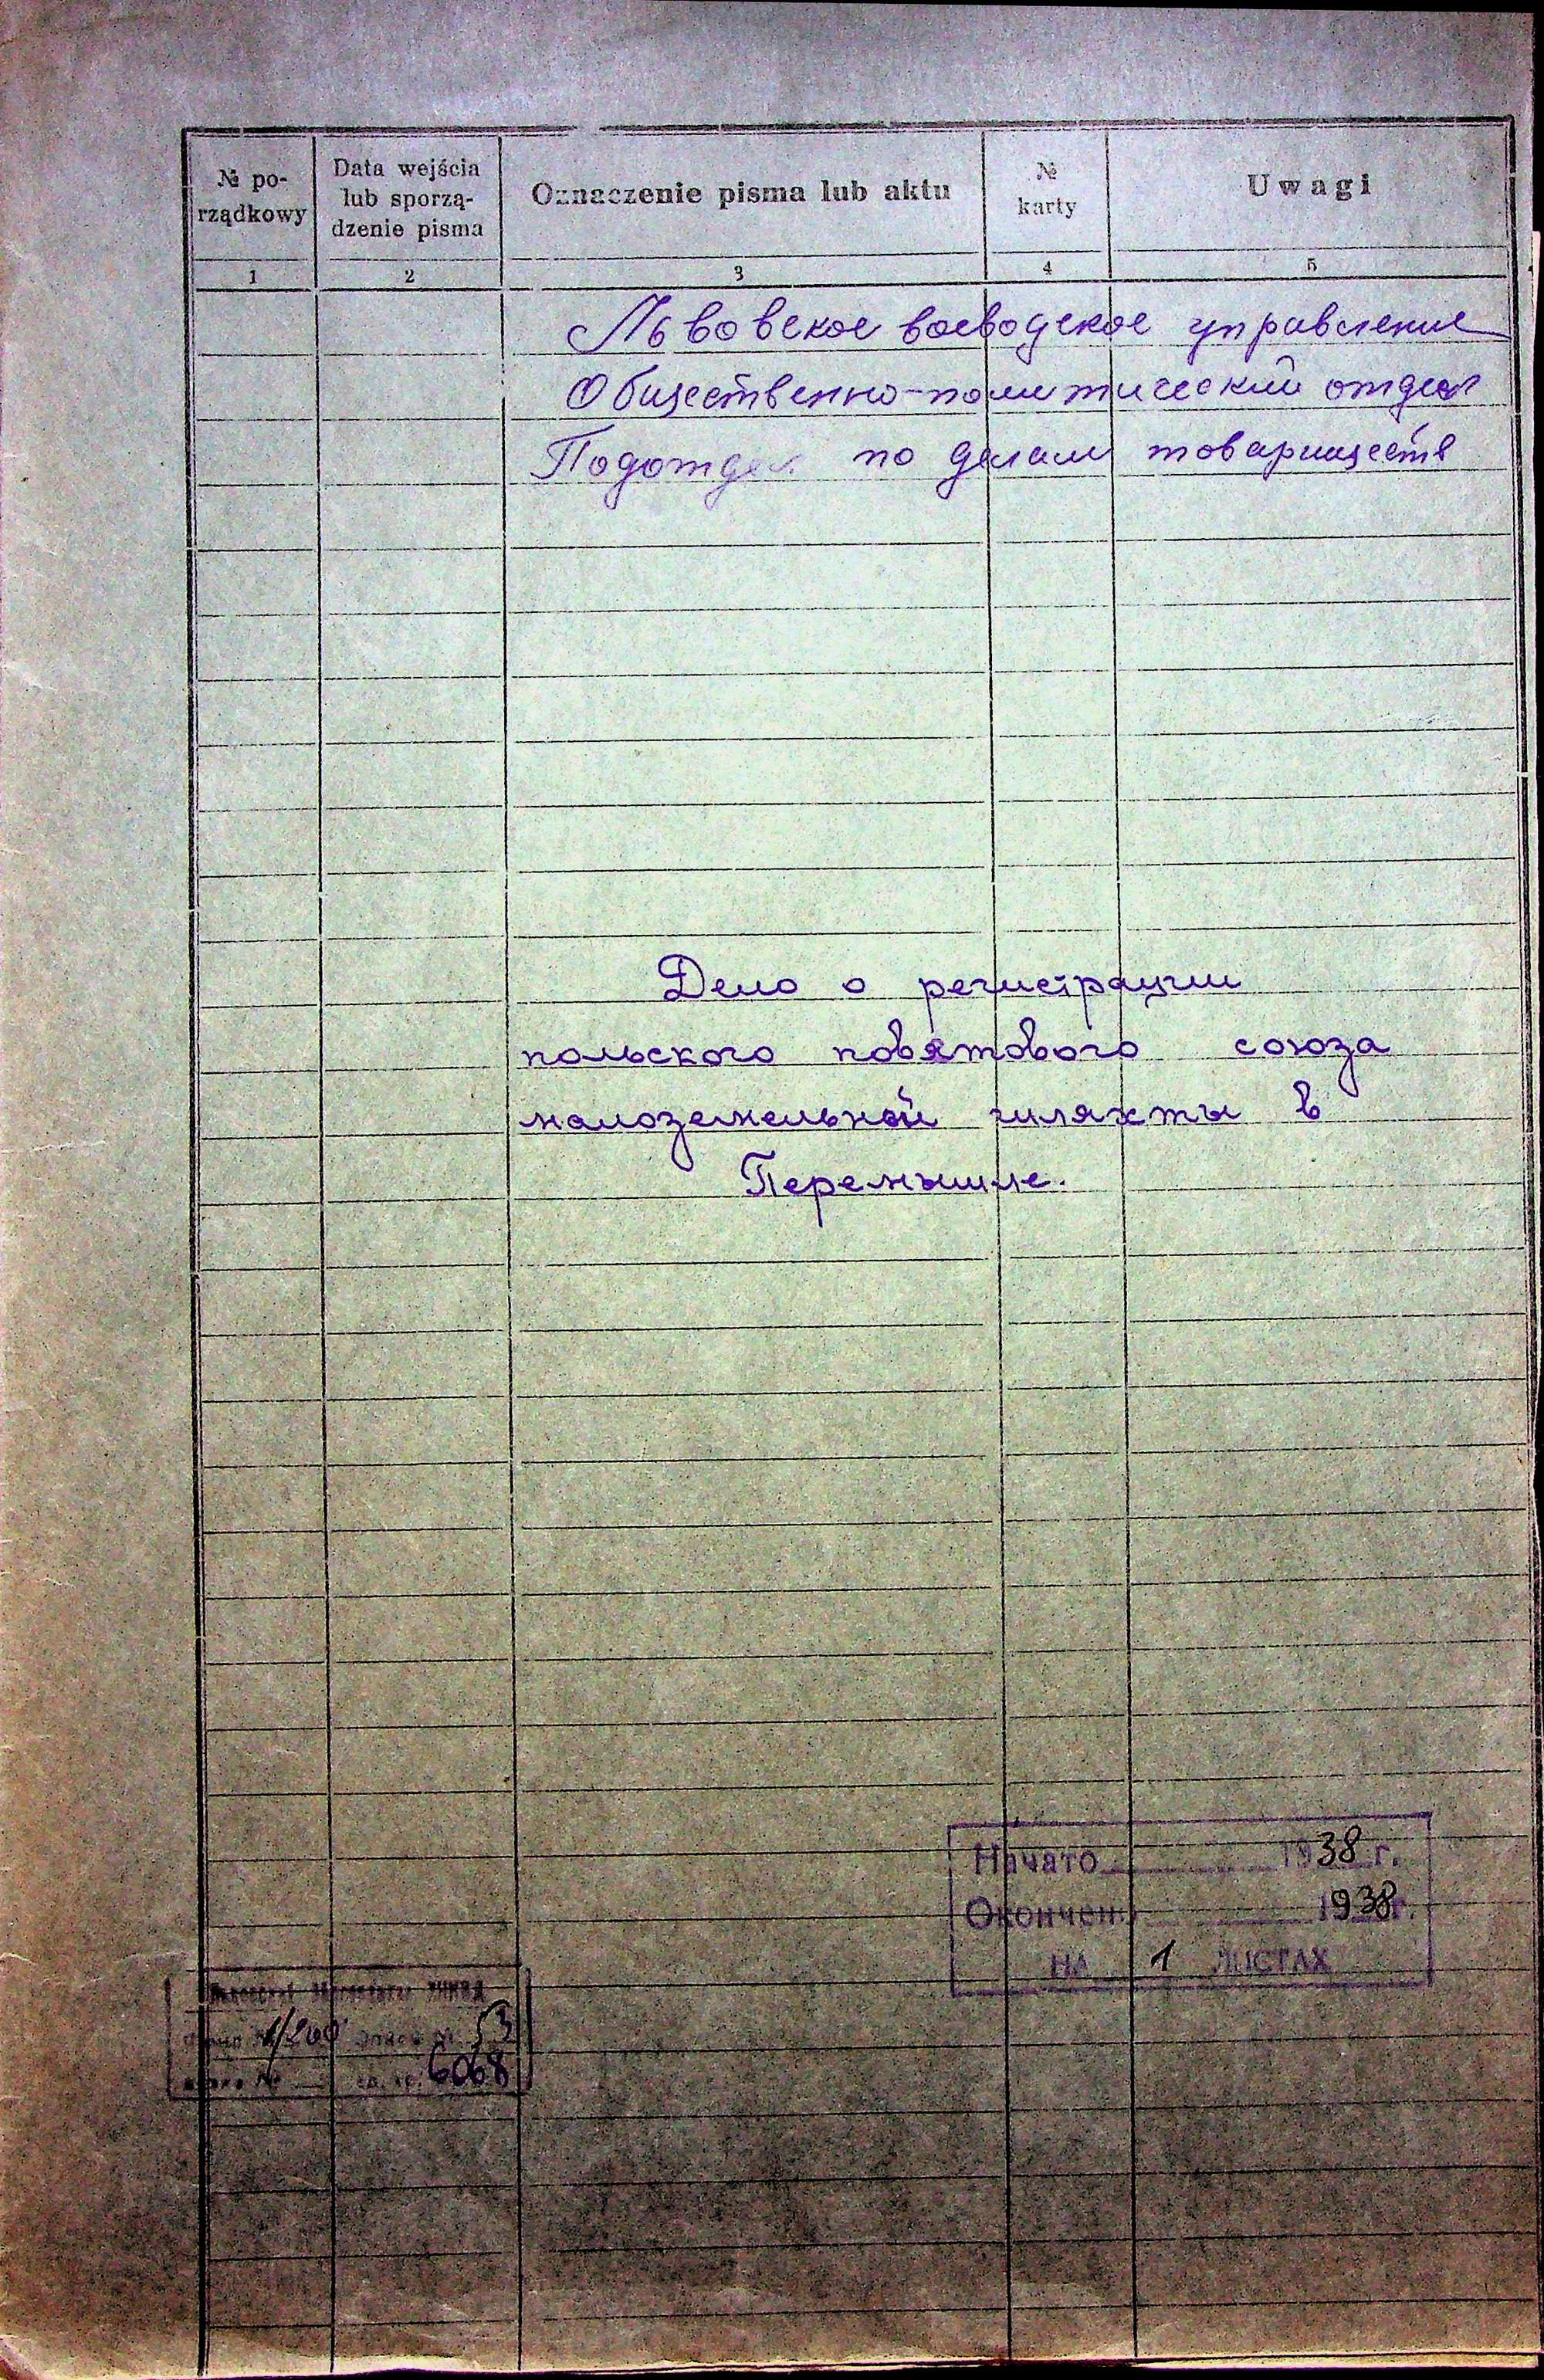 № po-
rządkowy
Data wejścia
lub sporzą-
dzenie pisma
Oznaczenie pisma lub aktu
№
karty
Uwagi
1 2 3 4 5
Львовское воеводское управление
Общественно-политический отдел
Подотдел по делам товариществ
Дело о регистрации
польского повятового союза
малоземельной шляхты в
Перемышле.
Начато 1938 г.
Окончено 1938 г.
НА 1 ЛИСТАХ
53
6068